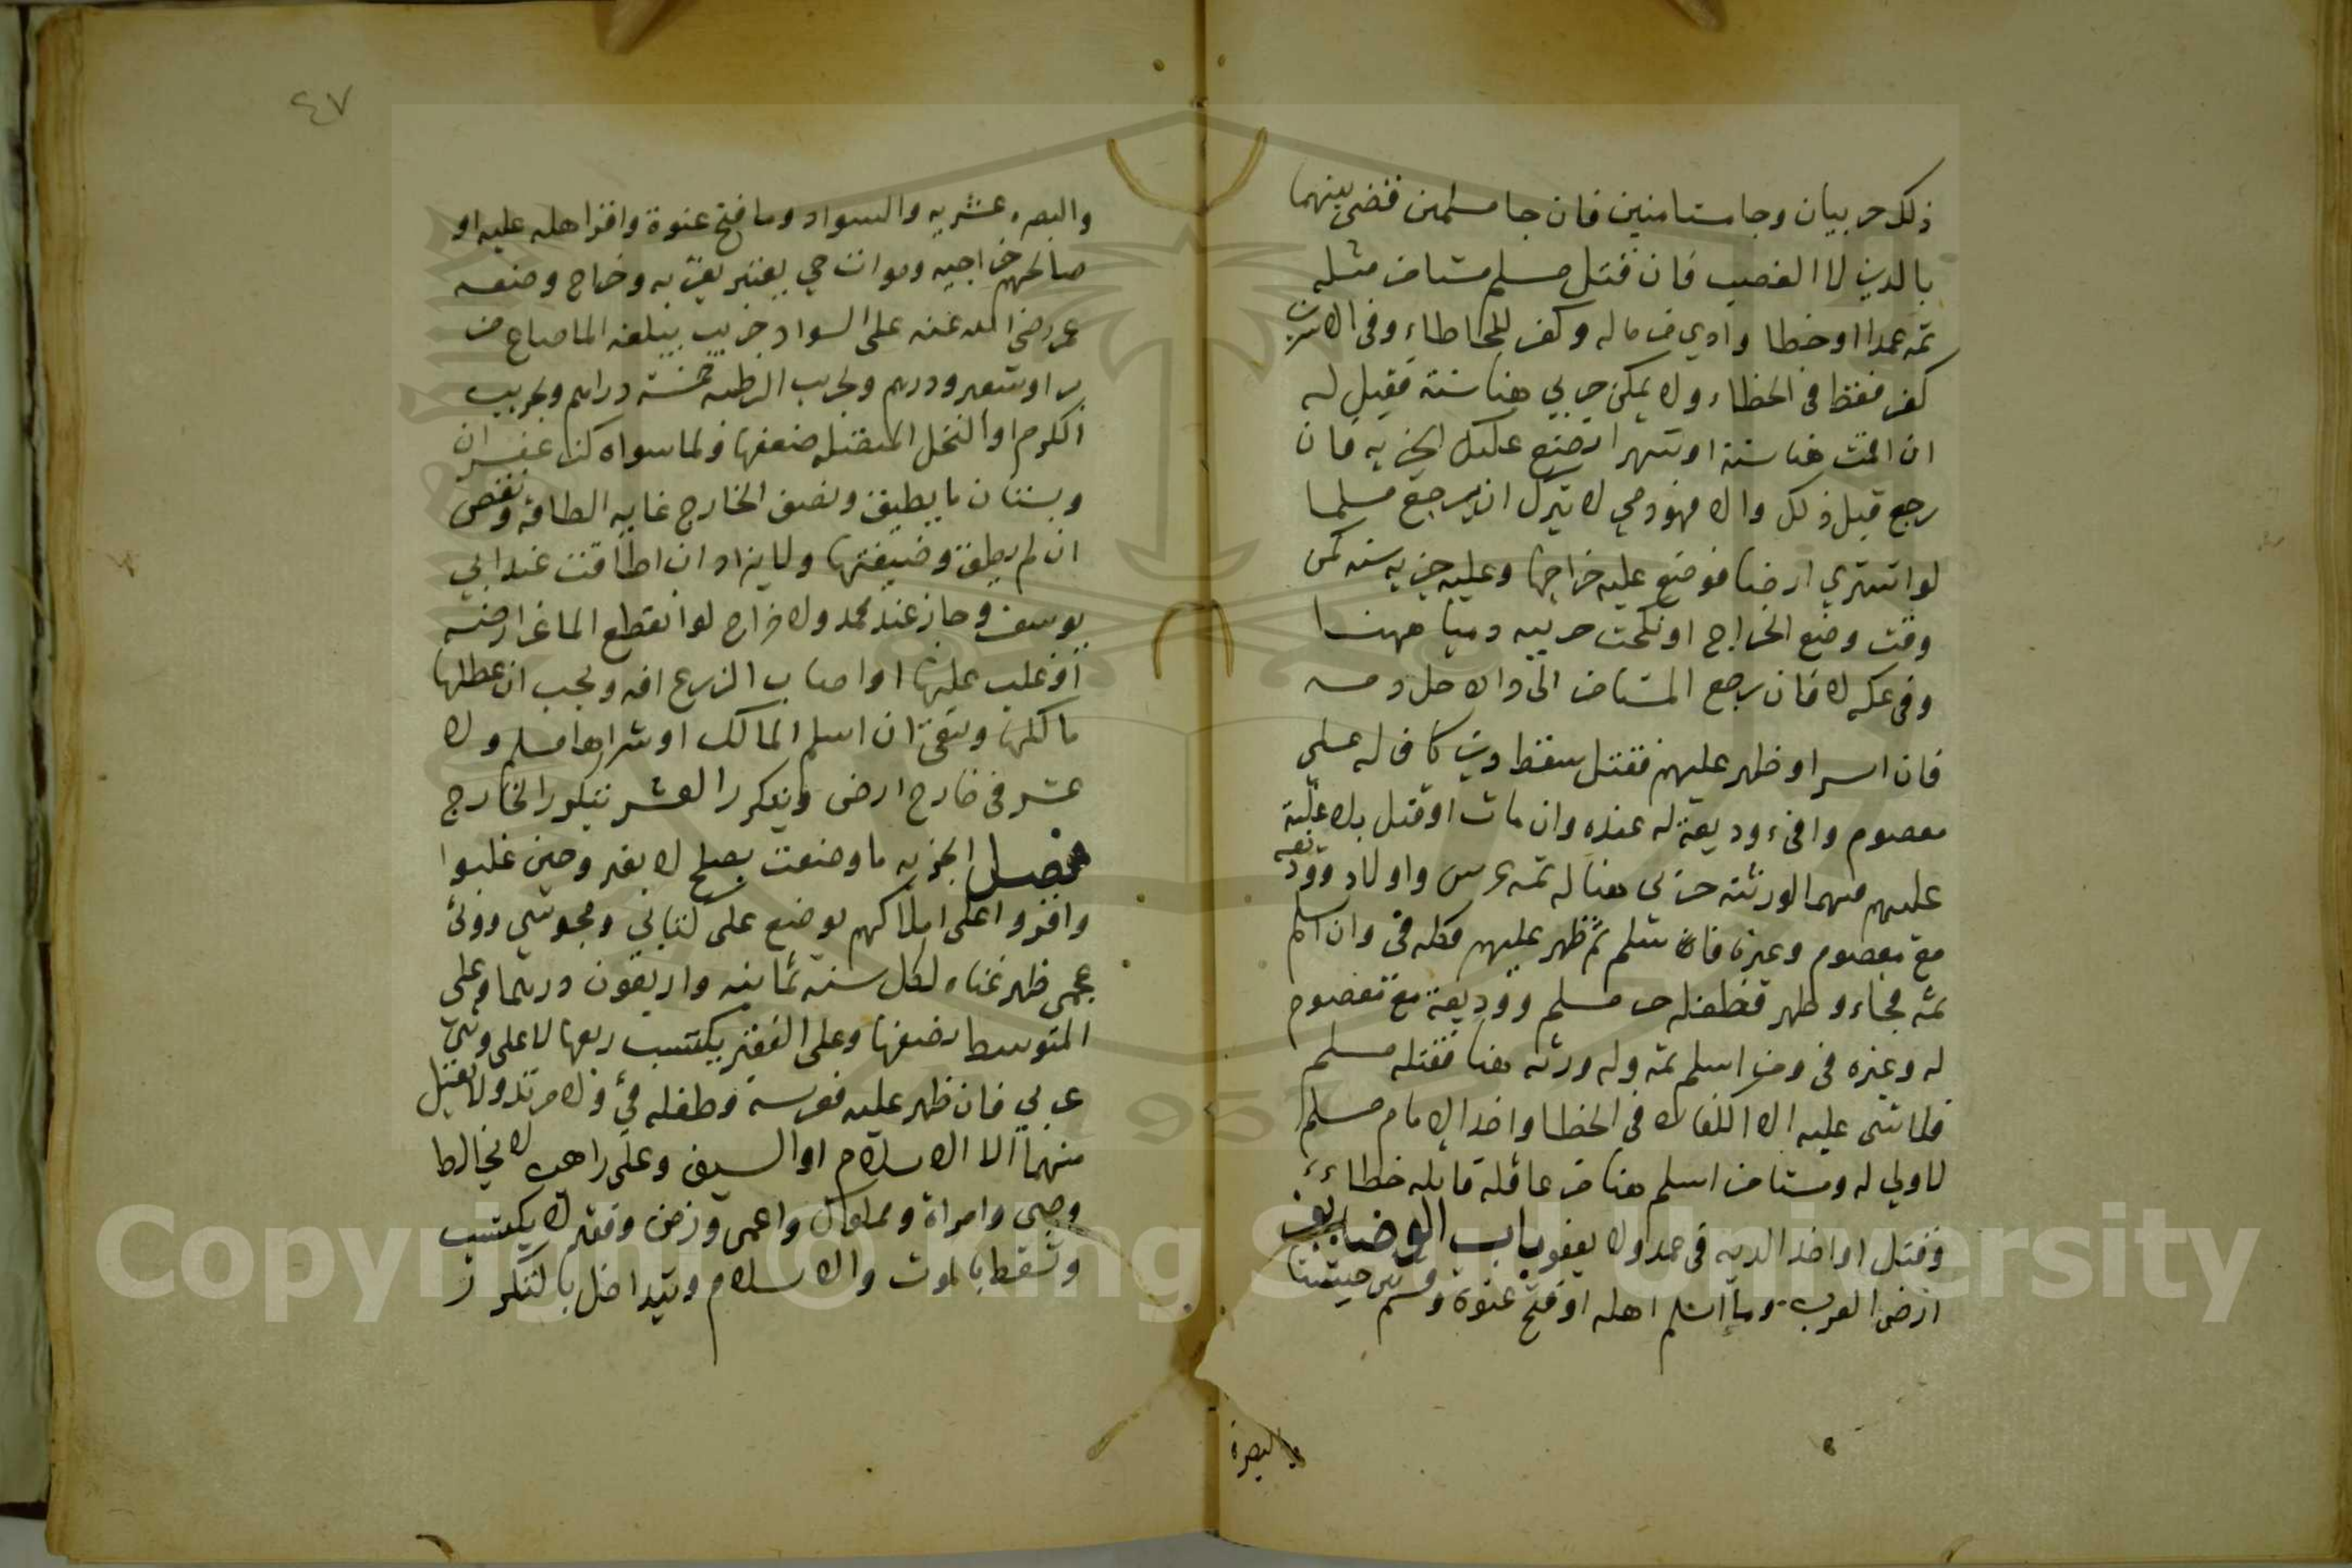 ذلك حربيان وجا مستامنين فان جا مسلمين قضى بينهما
بالدين لا الغصب فان قتل مسلم مستامن مثله
ثمه عمدا او خطا وادي من ماله وكفر للخطاء وفي الاسيرين
كفر فقط في الخطاء ولا يمكن حربي هنا سنة فقيل له
ان اقمت هنا سنة او شهرا نضع عليك الجزيه فان
رجع قبل ذلك والا فهو ذمي لا يترك ان يرجع مسلما
لو اشتري ارضا فوضع عليه خراجها وعليه جزيه سنه من
وقت وضع الخراج او نكحت حربيه ذميا ههنا
وفي عكسه لا فان رجع المستامن الى دا الا حل دمه
فان اسر او ظهر عليهم فقتل سقط دين كان له على
معصوم وافئ وديعة له عنده وان مات او قتل بلا غلبة
عليهم فهما لورثته حربي هنا له ثمه عرس واولاد ووديعه
مع معصوم وغيره فان سلم ثم ظهر عليهم فكله فئ وان اسلم
ثمه فجاء وظهر فطفله حر مسلم ووديعة مع معصوم
له وغيره فئ ومن اسلم ثمه وله ورثه هنا فقتله مسلم
فلا شئ عليه الا الكفارة في الخطا واخذ الامام مسلم
لا ولي له ومستامن اسلم هنا من عاقلة قاتله خطاء
وقتل او اخذ الديه في عمد ولا يعفو باب الوضايف
ارض العرب وما اسلم اهله او فتح عنوة وقسم بين جيشنا
والبصرة
٤٧
والبصره عشريه والسواد وما فتح عنوة واقر اهله عليه او
صالحهم خراجيه وموات حي يعتبر بقربه وخراج وضعه
عمر رضي الله عنه على السواد جريب يبلغه الما صاع من
بر او شعير ودرهم ولجريب الرطبه خمسة دراهم ولجريب
الكرم او النخل المتصله ضعفها ولما سواه كزعفران
وبستان ما يطيق ونصف الخارج غايه الطاقه ونقص
ان لم يطق وضيفتها ولا يزاد ان اطاقت عند ابي
يوسف وجاز عند محمد ولا خراج لو انقطع الما عن ارضه
او غلب عليها او اصاب الزرع افه ويجب ان عطلها
مالكها ويبقى ان اسلم المالك او شراها مسلم ولا
عشر في خارج ارض ويتكرر العشر بتكرر الخارج
فصل الجزيه ما وضعت بصلح لا يغير وحين غلبوا
واقروا على املاكهم توضع على كتابي ومجوسي ووثني
عجمي ظهر غناه لكل سنة ثمانيه واربعون درهما وعلى
المتوسط نصفها وعلى الفقير يكتسب ربعها لا على وثني
عربي فان ظهر عليه فعرسه وطفله فئ ولا مرتد ولا يقبل
منهما الا الاسلام او السيف وعلى راهب لا يخالط
وصبي وامراة ومملوك واعمى وزمن وفقير لا يكتسب
وتسقط بالموت والاسلام ويتداخل بالتكرر